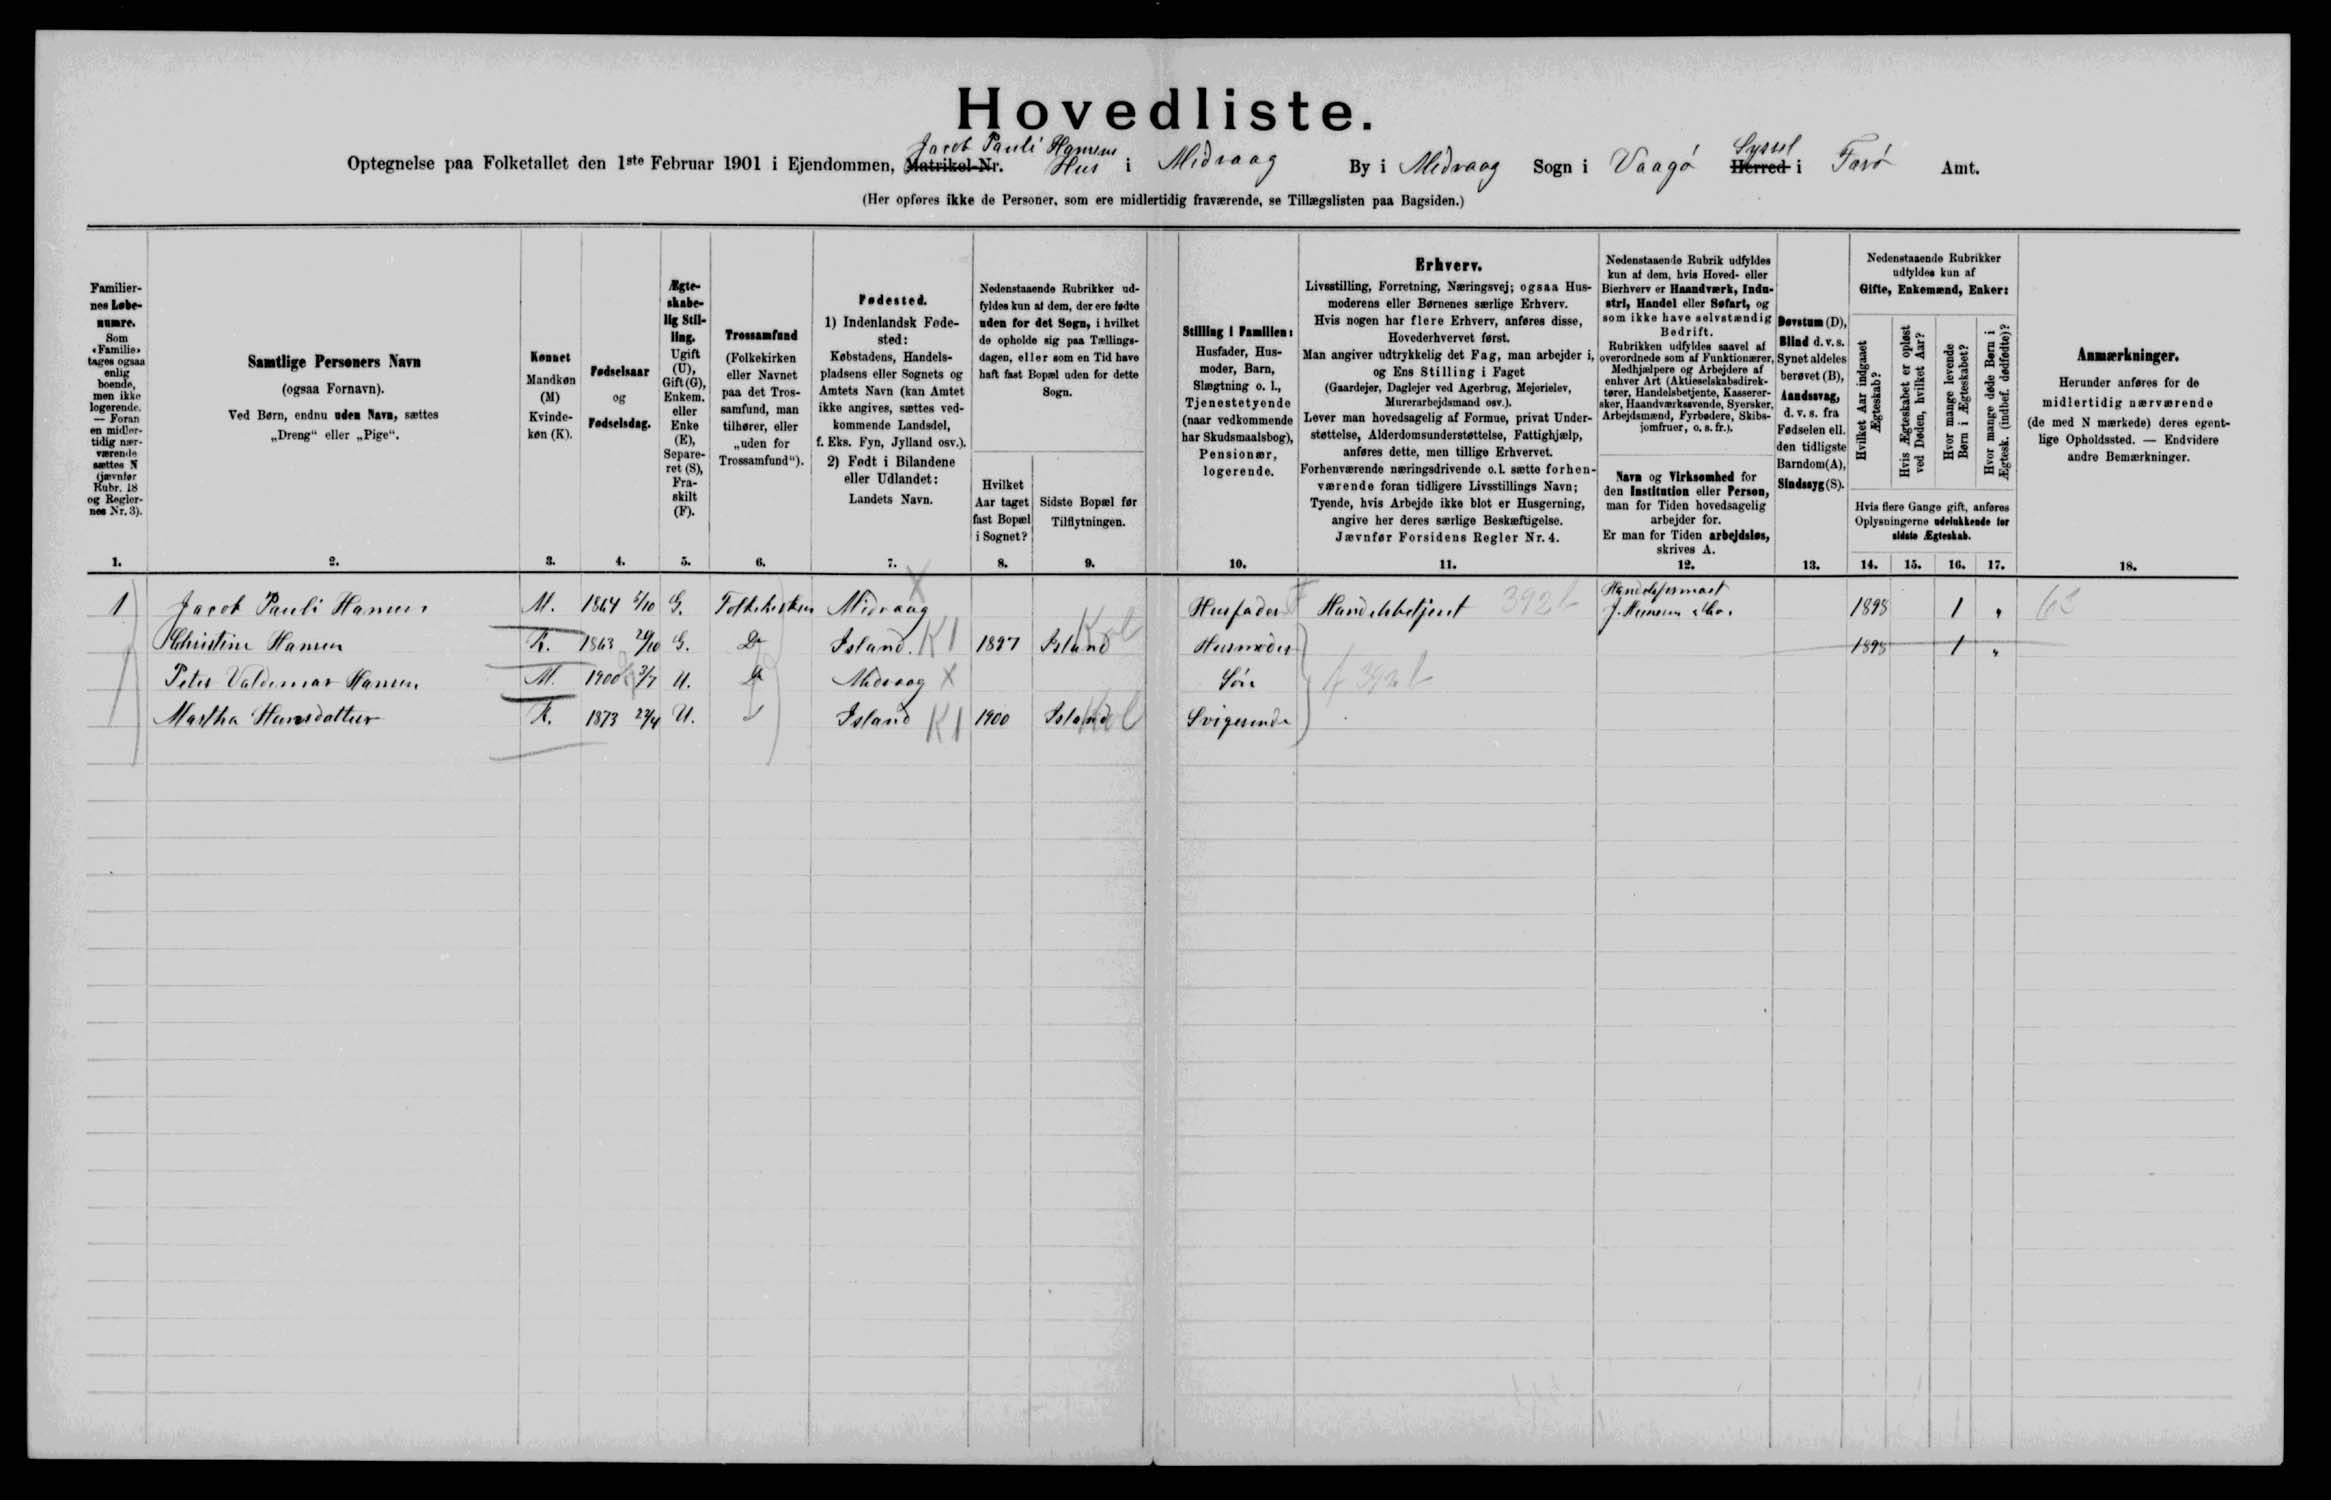 Hovedliste.
Jacob Pauli Hansens
Optegnelse paa Folketallet den 1ste Februar 1901 i Ejendommen, Matrikel-Nr. Hus i Midvaag By i Midvaag Sogn i Vaagø Syssel Herred i Færø Amt.
(Her opføres ikke de Personer, som ere midlertidig fraværende, se Tillægslisten paa Bagsiden.)
Familier-
nes Løbe-
numre.
Som
«Familie»
tages ogsaa
enlig
boende,
men ikke
logerende.
— Foran
en midler-
tidig nær-
værende
sættes N
(jævnfør
Rubr. 18
og Regler-
nes Nr. 3).
1.
Samtlige Personers Navn
(ogsaa Fornavn).
Ved Børn, endnu uden Navn, sættes
„Dreng“ eller „Pige“.
2.
Kønnet
Mandkøn
(M)
Kvinde-
køn (K).
3.
Fødselsaar
og
Fødselsdag.
4.
Ægte-
skabe-
lig Stil-
ling.
Ugift
(U),
Gift (G),
Enkem.
eller
Enke
(E),
Separe-
ret (S),
Fra-
skilt
(F).
5.
Trossamfund
(Folkekirken
eller Navnet
paa det Tros-
samfund, man
tilhører, eller
„uden for
Trossamfund“).
6.
Fødested.
1) Indenlandsk Føde-
sted:
Købstadens, Handels-
pladsens eller Sognets og
Amtets Navn (kan Amtet
ikke angives, sættes ved-
kommende Landsdel,
f. Eks. Fyn, Jylland osv.).
2) Født i Bilandene
eller Udlandet:
Landets Navn.
7.
Nedenstaaende Rubrikker ud-
fyldes kun af dem, der ere fødte
uden for det Sogn, i hvilket
de opholde sig paa Tællings-
dagen, eller som en Tid have
haft fast Bopæl uden for dette
Sogn.
Hvilket
Aar taget
fast Bopæl
i Sognet?
8.
Sidste Bopæl før
Tilflytningen.
9.
Stilling i Familien:
Husfader, Hus-
moder, Barn,
Slægtning o. l.,
Tjenestetyende
(naar vedkommende
har Skudsmaalsbog),
Pensionær,
logerende.
10.
Erhverv.
Livsstilling, Forretning, Næringsvej; ogsaa Hus-
moderens eller Børnenes særlige Erhverv.
Hvis nogen har flere Erhverv, anføres disse,
Hovederhvervet først.
Man angiver udtrykkelig det Fag, man arbejder i,
og Ens Stilling i Faget
(Gaardejer, Daglejer ved Agerbrug, Mejerielev,
Murerarbejdsmand osv.).
Lever man hovedsagelig af Formue, privat Under-
støttelse, Alderdomsunderstøttelse, Fattighjælp,
anføres dette, men tillige Erhvervet.
Forhenværende næringsdrivende o.l. sætte forhen-
værende foran tidligere Livsstillings Navn;
Tyende, hvis Arbejde ikke blot er Husgerning,
angive her deres særlige Beskæftigelse.
Jævnfør Forsidens Regler Nr. 4.
11.
Nedenstaaende Rubrik udfyldes
kun af dem, hvis Hoved- eller
Bierhverv er Haandværk, Indu-
stri, Handel eller Søfart, og
som ikke have selvstændig
Bedrift.
Rubrikken udfyldes saavel af
overordnede som af Funktionærer,
Medhjælpere og Arbejdere af
enhver Art (Aktieselskabsdirek-
tører, Handelsbetjente, Kasserer-
sker, Haandværkssvende, Syersker,
Arbejdsmænd, Fyrbødere, Skibs-
jomfruer, o. s. fr.).
Navn og Virksomhed for
den Institution eller Person,
man for Tiden hovedsagelig
arbejder for.
Er man for Tiden arbejdsløs,
skrives A.
12.
Døvstum (D),
Blind d. v. s.
Synet aldeles
berøvet (B),
Aandssvag,
d. v. s. fra
Fødselen ell.
den tidligste
Barndom (A),
Sindssyg (S).
13.
Nedenstaaende Rubrikker
udfyldes kun af
Gifte, Enkemænd, Enker:
Hvilket Aar indgaaet
Ægteskab?
Hvis Ægteskabet er opløst
ved Døden, hvilket Aar?
Hvor mange levende
Børn i Ægteskabet?
Hvor mange døde Børn i
Ægtesk. (indbef. dødfødte)?
Hvis flere Gange gift, anføres
Oplysningerne udelukkende for
sidste Ægteskab.
14. 15. 16. 17.
Anmærkninger.
Herunder anføres for de
midlertidig nærværende
(de med N mærkede) deres egent-
lige Opholdssted. — Endvidere
andre Bemærkninger.
18.
1 Jacob Pauli Hansen M. 1864 5/10 G. Folkekirken Midvaag X Husfader Handelsbetjent 392b 1898 1 " 63
Christine Hansen K. 1863 G. Do Island. K1 1897 Island Husmoder 1898 1 "
Peter Valdemar Hansen M. 1900 3/7 U. Do Midvaag X Søn 392b
Martha Hansdatter K. 1873 U. Island K1 1900 Island